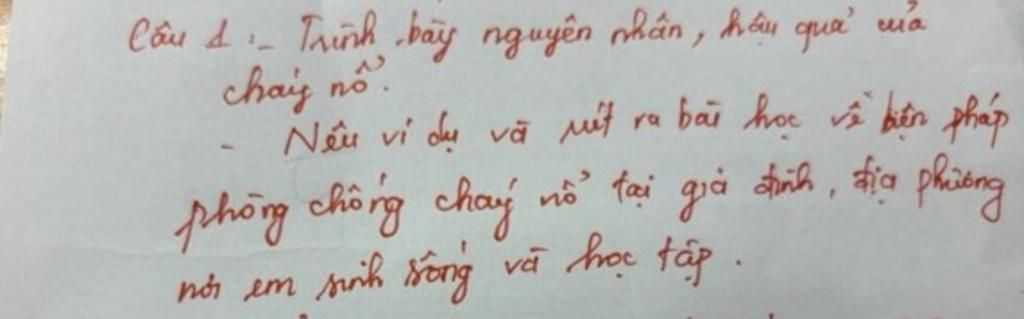 Câu 1: - Trình bày nguyên nhân, hậu quả của
cháy nổ.
- Nêu ví dụ và rút ra bài học về biện pháp
phòng chống cháy nổ tại gia đình, địa phương
nơi em sinh sống và học tập.